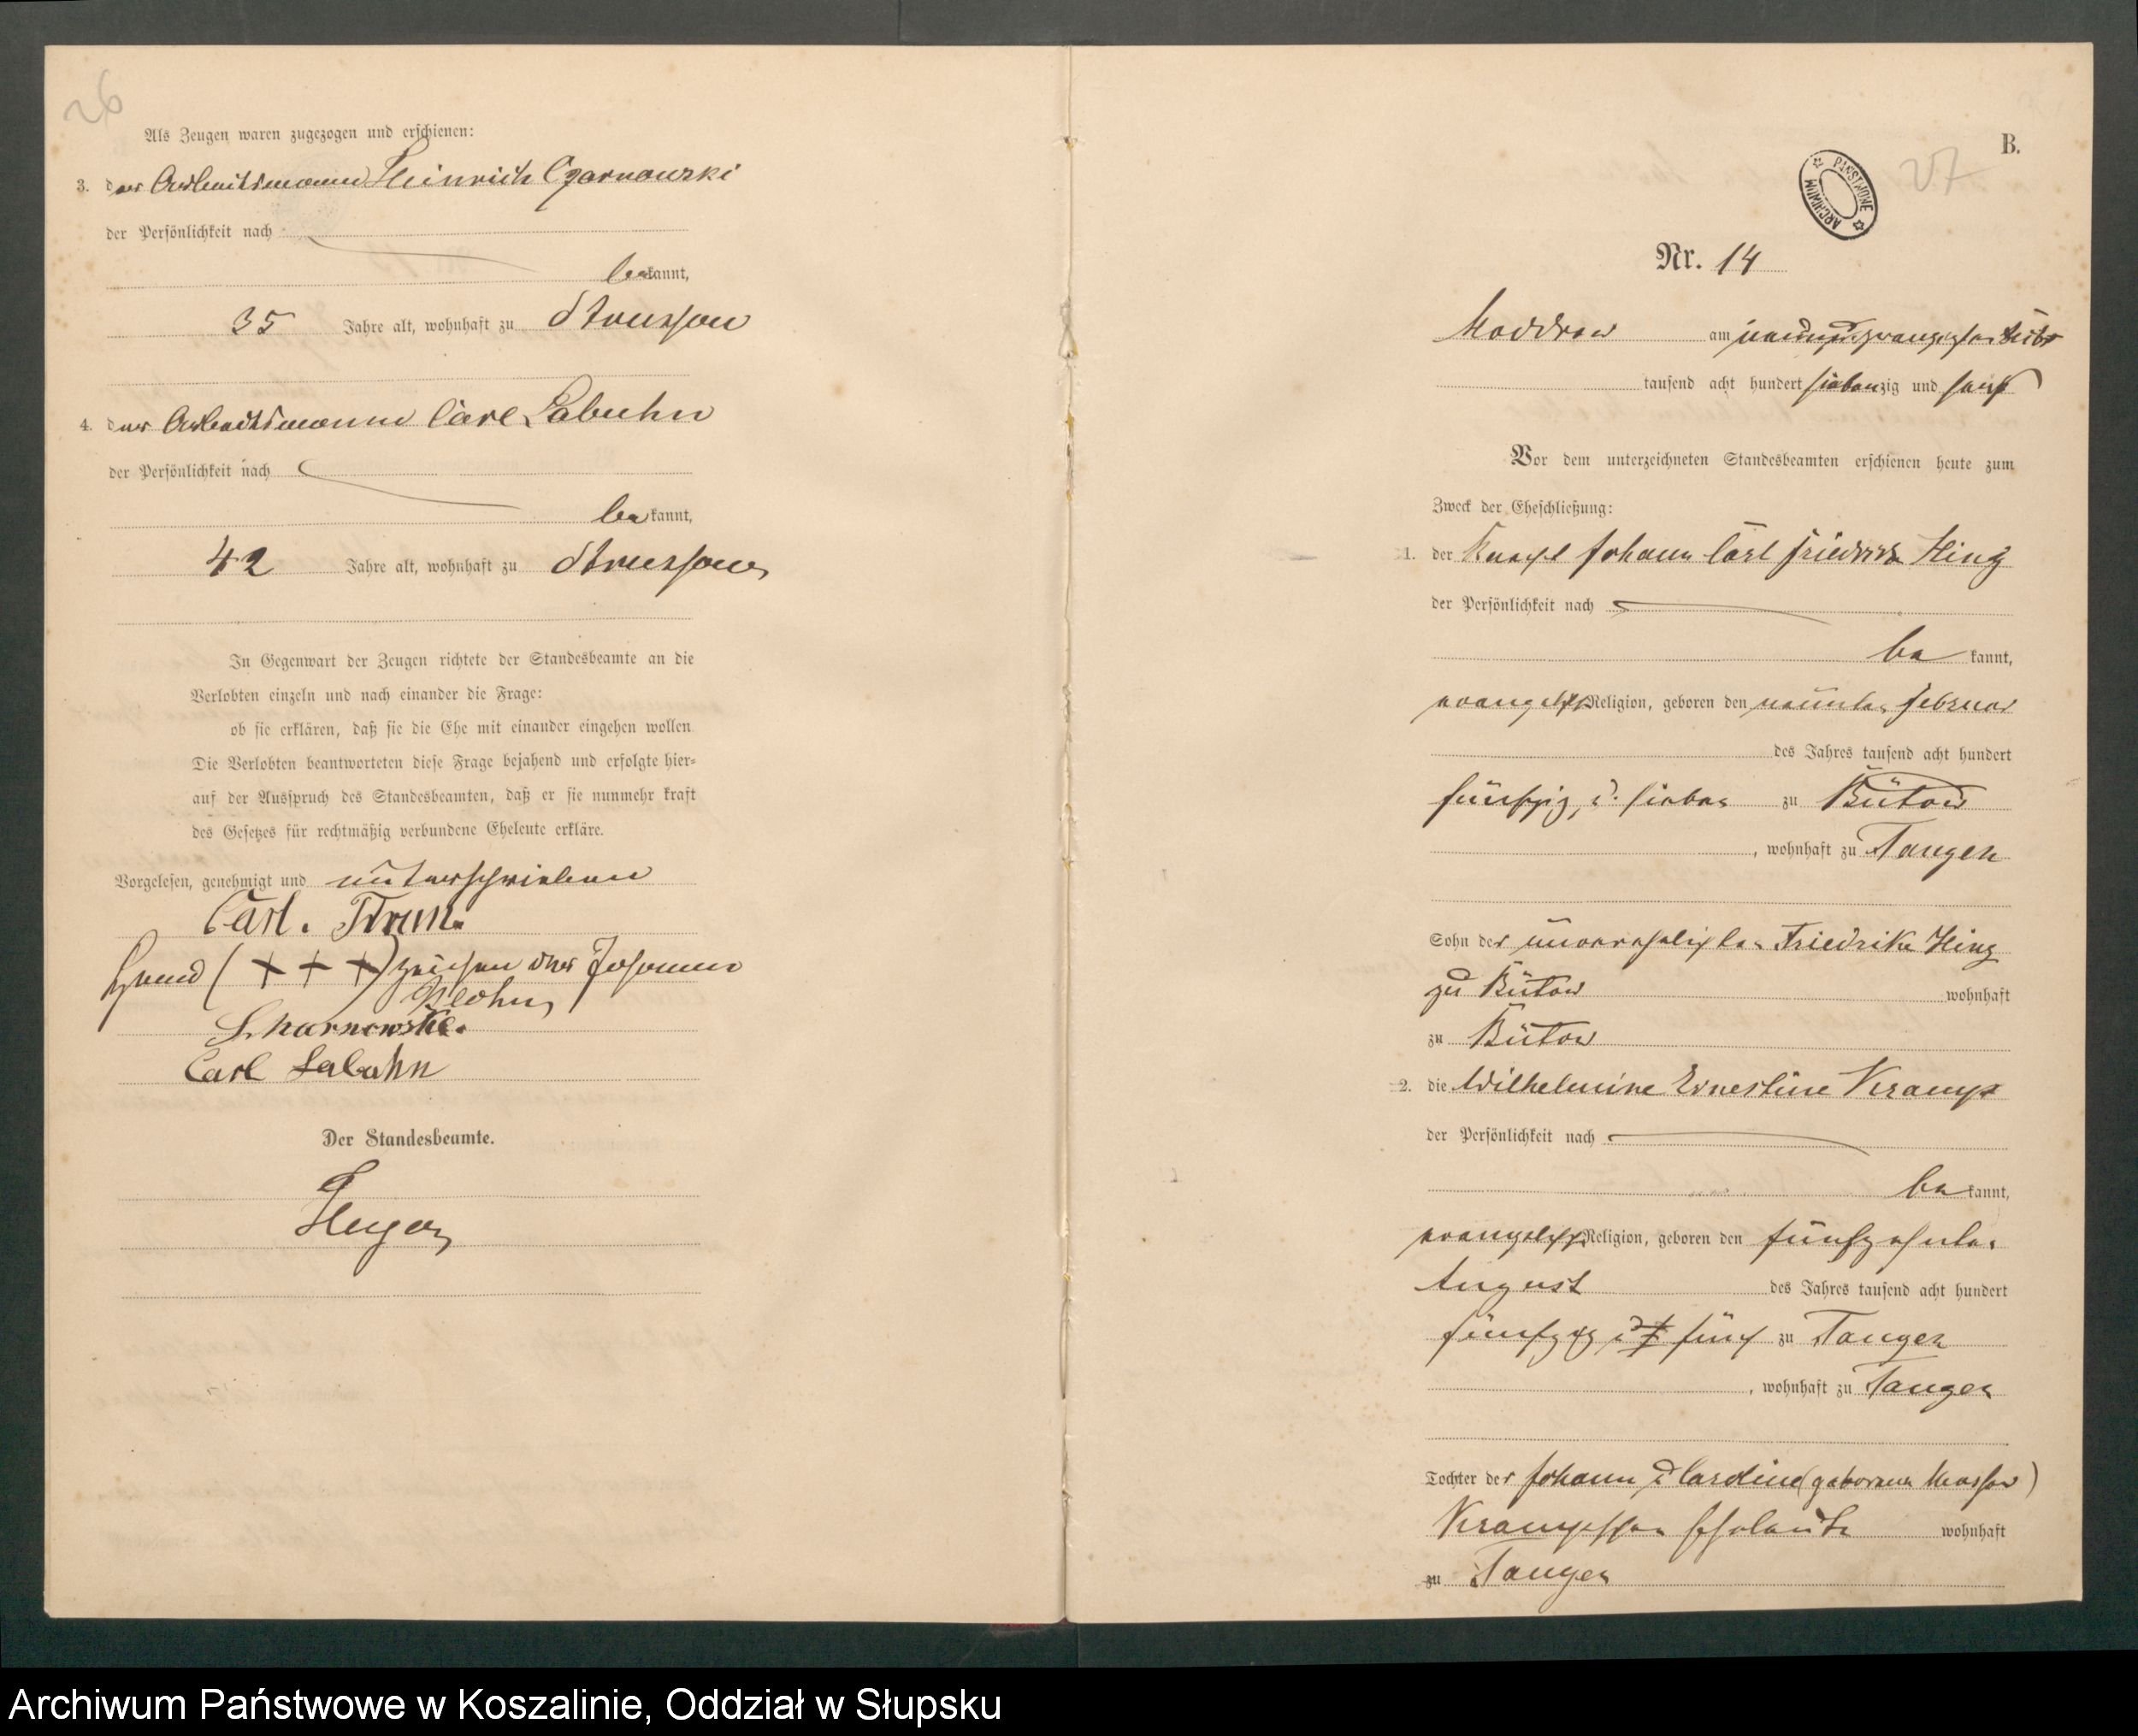 26
Als Zeugen waren zugezogen und erschienen:
3. der Arbeitsmann Heinrich Czarnowski
der Persönlichkeit nach
bekannt,
35 Jahre alt, wohnhaft zu Strussow
4. der Arbeitsmann Carl Labuhn
der Persönlichkeit nach
bekannt,
42 Jahre alt, wohnhaft zu Strussow
In Gegenwart der Zeugen richtete der Standesbeamte an die
Verlobten einzeln und nach einander die Frage:
ob sie erklären, daß sie die Ehe mit einander eingehen wollen
Die Verlobten beantworteten diese Frage bejahend und erfolgte hier=
auf der Ausspruch des Standesbeamten, daß er sie nunmehr kraft
des Gesetzes für rechtmäßig verbundene Eheleute erkläre.
Vorgelesen, genehmigt und unterschrieben
Carl.
Hand (+++) zeichen der Johanne
Carl Labuhn
Der Standesbeamte.
B.
27
ARCHIWUM PAŃSTWOWE
Nr. 14
Moddrow am neunundzwanzigsten
tausend acht hundert siebenzig und fünf
Vor dem unterzeichneten Standesbeamten erschienen heute zum
Zweck der Eheschließung:
1. der Knecht Johann Carl Friedrich Hing
der Persönlichkeit nach
bekannt,
evangelisch Religion, geboren den neunten Februar
des Jahres tausend acht hundert
fünfzig u. sieben zu Bütow
, wohnhaft zu Tangen
Sohn der unverehelichten Friedrike Hing
zu Bütow wohnhaft
zu Bütow
2. die Wilhelmine Ernestine Kramp
der Persönlichkeit nach
bekannt,
evangelisch Religion, geboren den fünfzehnten
August des Jahres tausend acht hundert
fünfzig u fünf zu Tangen
, wohnhaft zu Tangen
Tochter der Johann u Caroline (geborene Massow)
Krampschen Eheleute wohnhaft
zu Tangen
Archiwum Państwowe w Koszalinie, Oddział w Słupsku